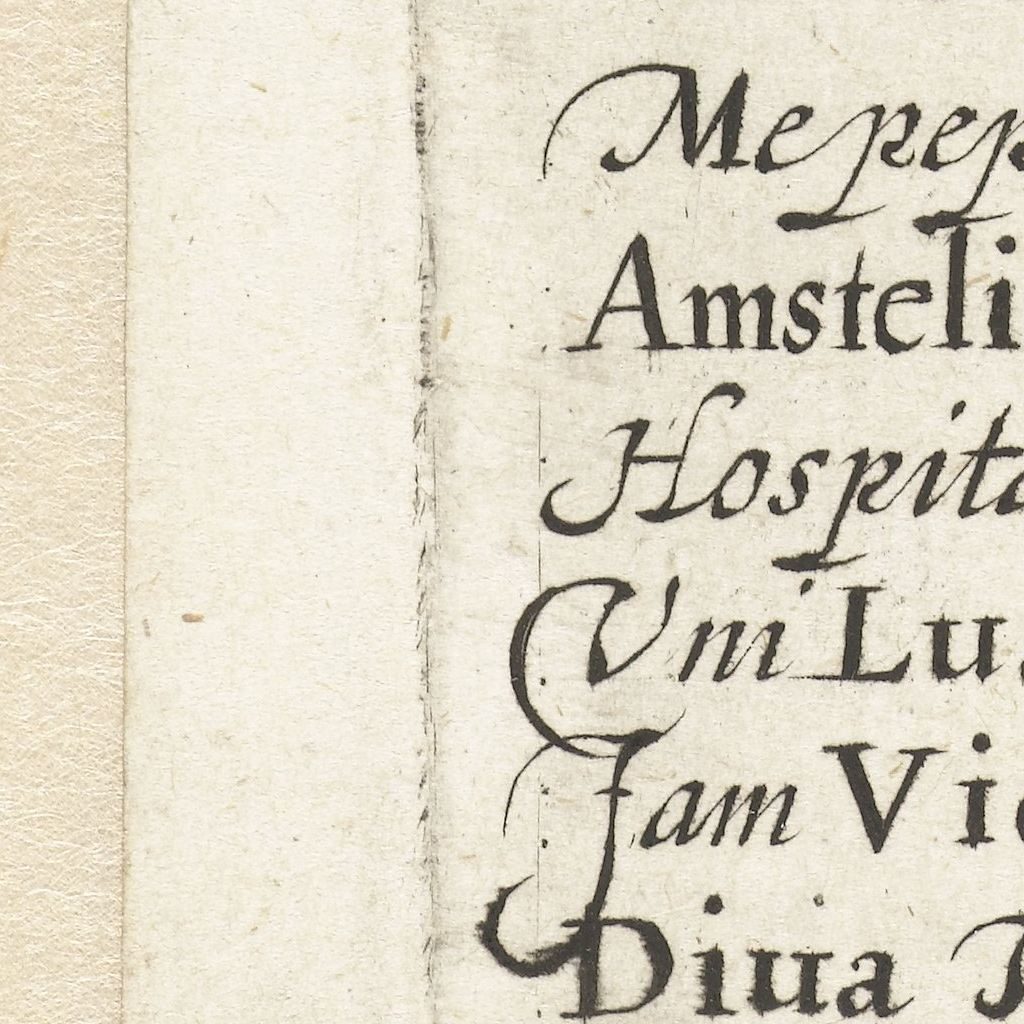 Me pep
Amsteli
Hospita
Vni Lu
Jam Vi
Diua